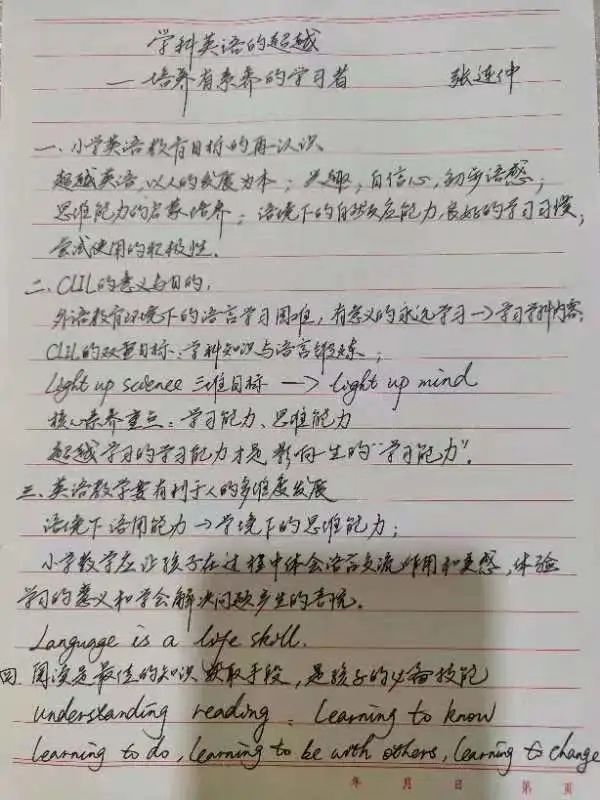 学科英语的超越
—培养有素养的学习者 张连仲
一、小学英语教育目标的再认识
超越英语，以人的发展为本；兴趣，自信心，初步语感；
思维能力的启蒙培养；语境下的自然反应能力，良好的学习习惯，
尝试使用的积极性。
二、CLIL的意义与目的：
外语教育环境下的语言学习困难，有意义的永远学习→学习学科内容；
CLIL的双重目标：学科知识与语言锻炼；
Light up science 三维目标 —> light up mind
核心素养重点：学习能力、思维能力
超越学习的学习能力才是影响一生的“学习能力”。
三、英语教学要有利于人的多维度发展
语境下语用能力→学境下的思维能力；
小学教学应让孩子在过程中体会语言交流作用和美感，体验
学习的意义和学会解决问题产生的喜悦。
Language is a life skill.
四、阅读是最佳的知识获取手段，是孩子的必备技能
understanding reading : Learning to know
learning to do, learning to be with others, learning to change
年 月 日 第 页